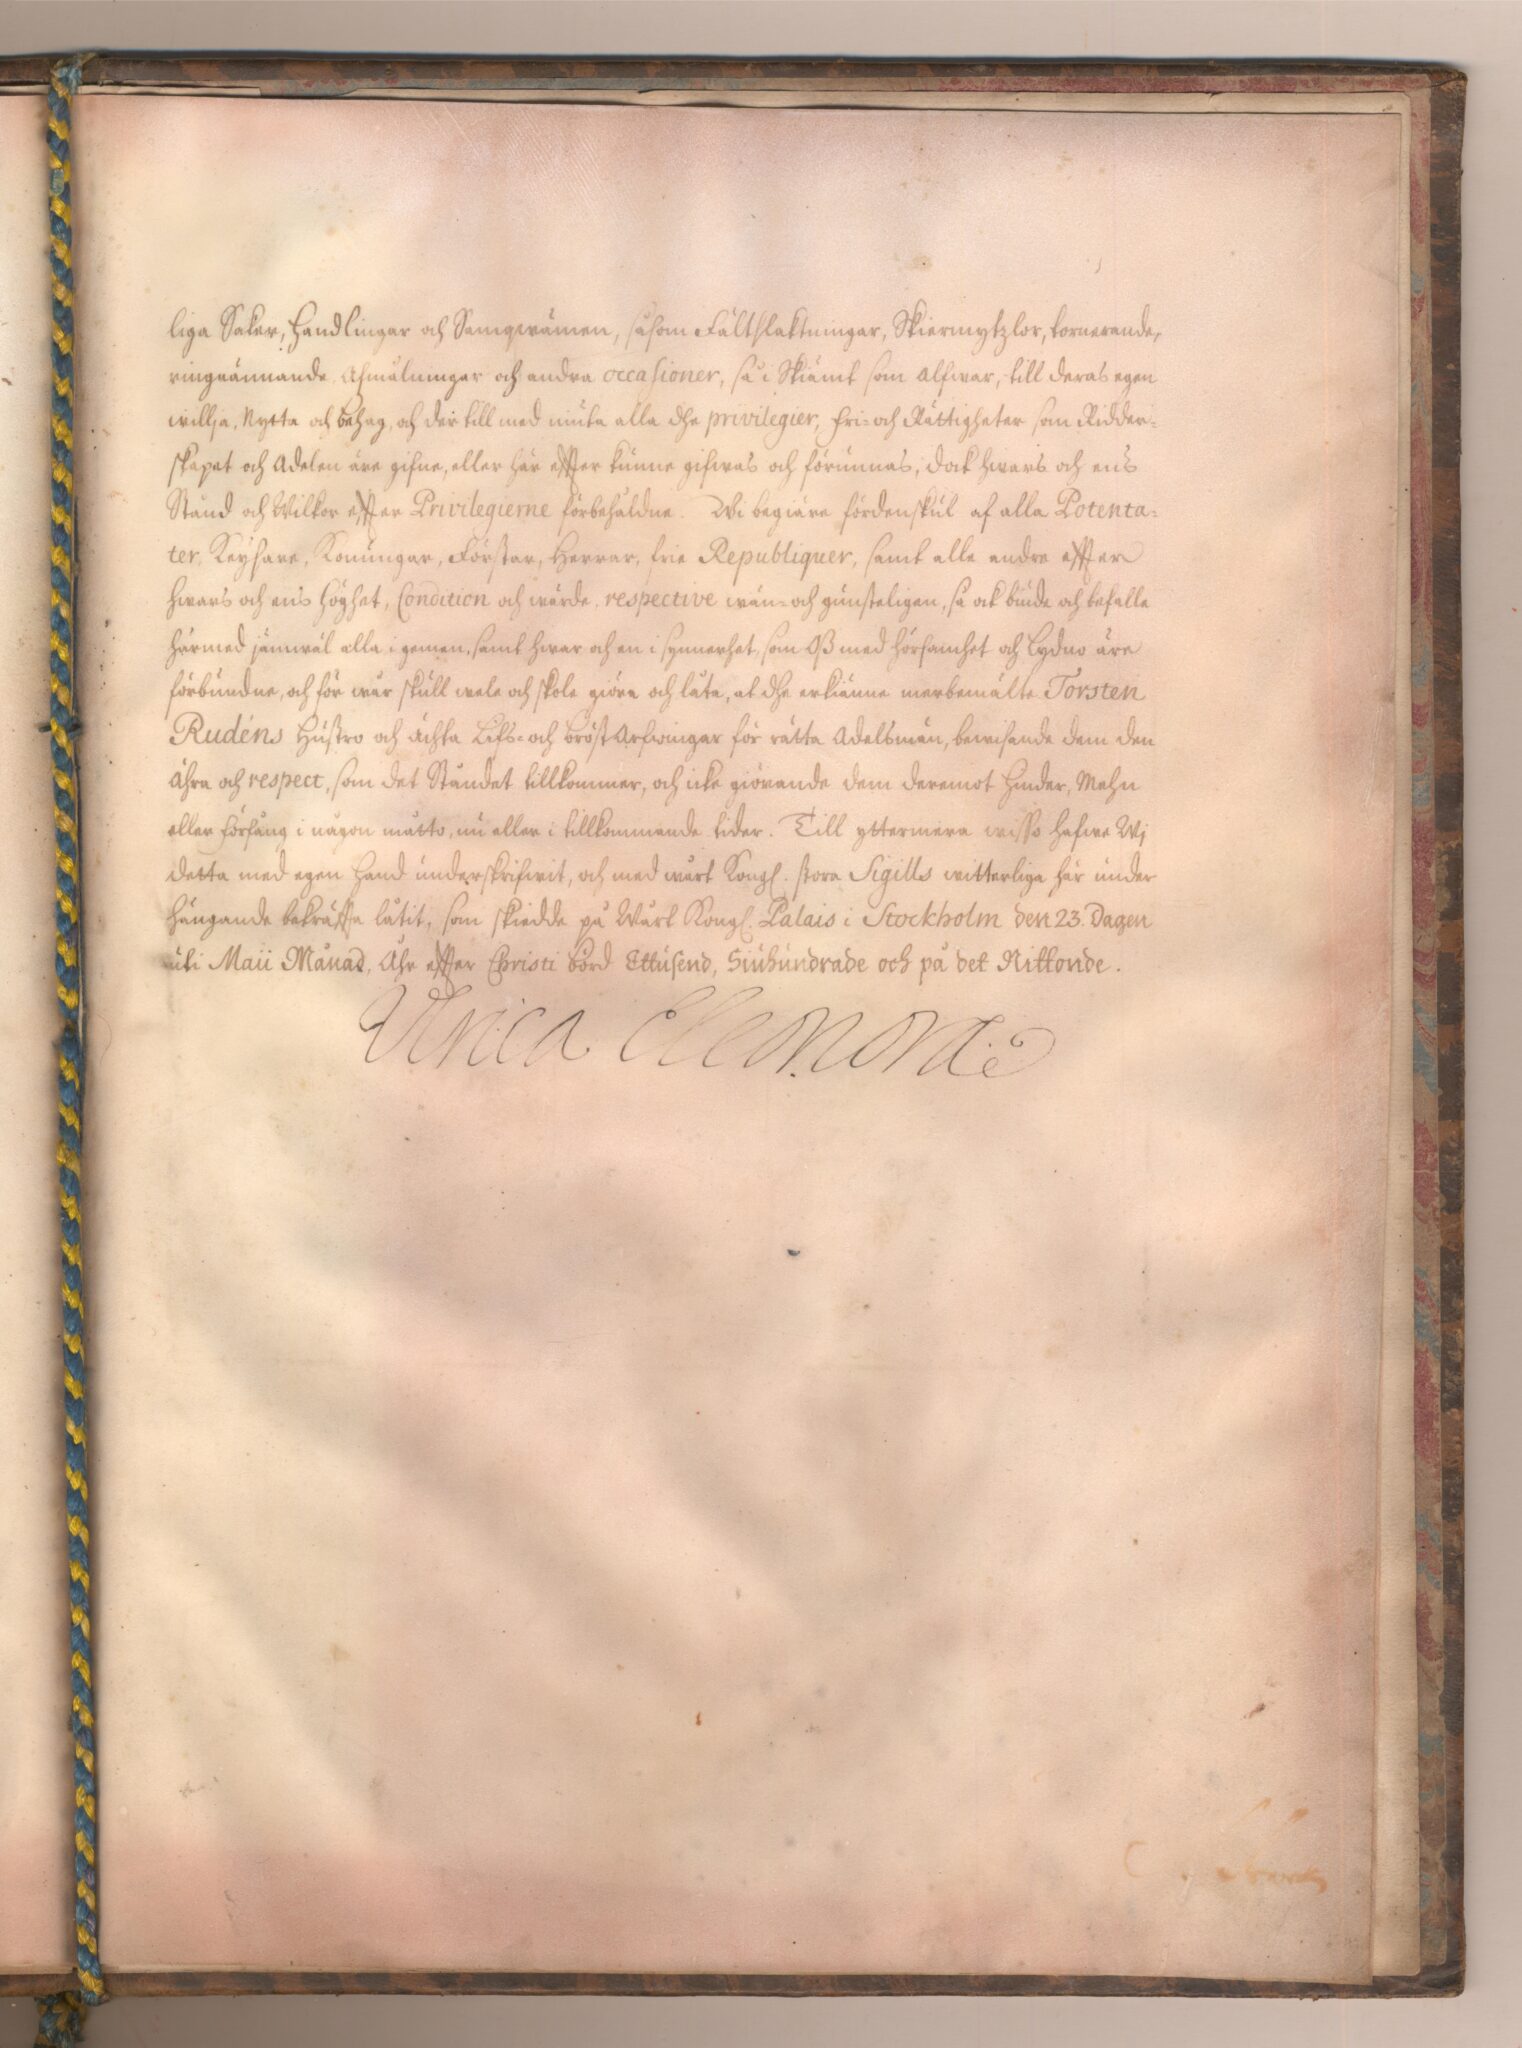 liga Saker, Handlingar och Samqwämen, såsom Fältslaktningar, Skiermytzlor, tornerande,
ringrännande, Afmålningar och andra occasioner, så i Skiämt som Alfwar, till deras egen
willja, Nytta och behag, och der till med niuta alla dhe privilegier, fri- och Rättigheter som Ridder-
skapet och Adelen äre gifne, eller här effter kunne gifwas och förunnas, dock hwars och ens
Stånd och Wilkor effter Privilegierne förbehåldne. Wi begiäre fördenskul af alla Potenta-
ter, Keysare, Konungar, Förstar, Herrar, frie Republiquer, samt alle andre effter
hwars och ens Höghet, Condition och wärde, respective wän- och gunsteligen, så ock biude och befalle
härmed jämwäl alla i gemen, samt hwar och en i synnerhet, som Oß med hörsamhet och Lydno äre
förbundne, och för wår skull wele och skole giöra och låta, at dhe erkiänne merbemälte Torsten
Rudéns Hustro och ächta Lifs- och bröst Arfwingar för rätta Adelsmän, bewisande dem den
ähra och respect, som det Ståndet tillkommer, och icke giörande dem deremot Hinder, Mehn
eller förfång i någon måtto, nu eller i tillkommande tider. Till yttermera wisso hafwe Wj
detta med egen Hand underskrifwit, och med wårt Kongl. stora Sigills witterliga här under
hängande bekräffta låtit, som skiedde på Wårt Kongl. Palais i Stockholm den 23. Dagen
uti Maii Månad, Åhr effter Christi börd Ettusend, Siuhundrade och på det Nittonde.
Ulrica Eleonora